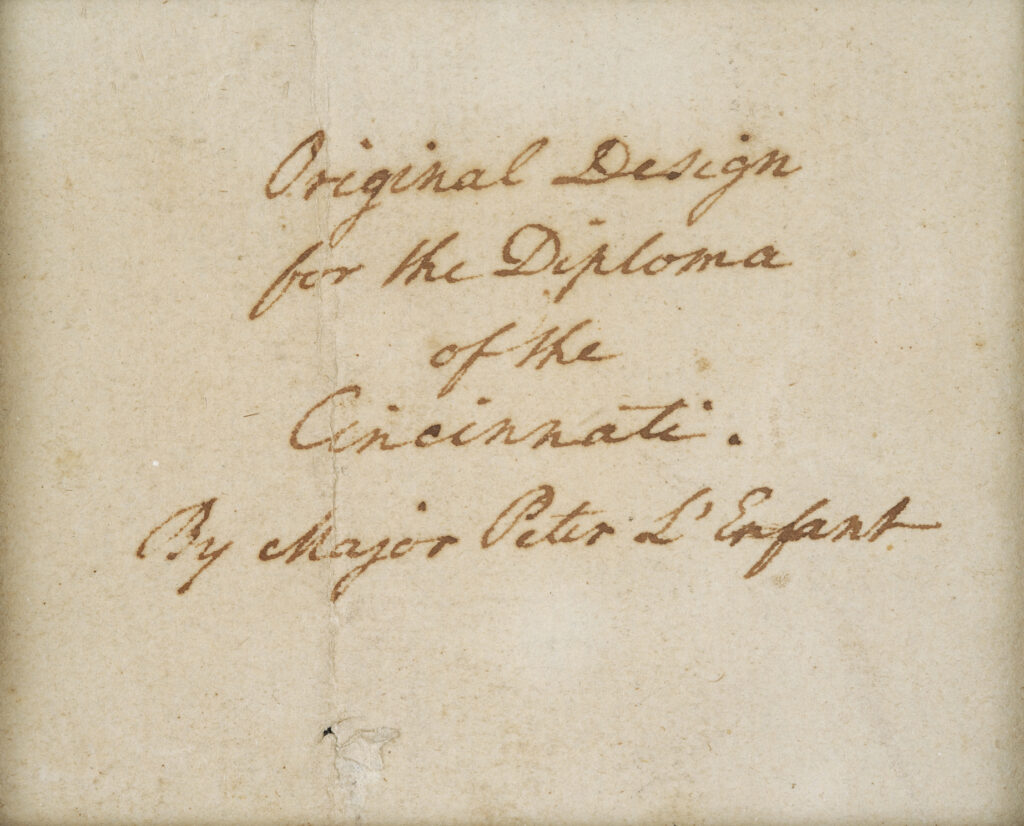 Original Design
for the Diploma
of the
Cincinnati.
By Major Peter L'Enfant